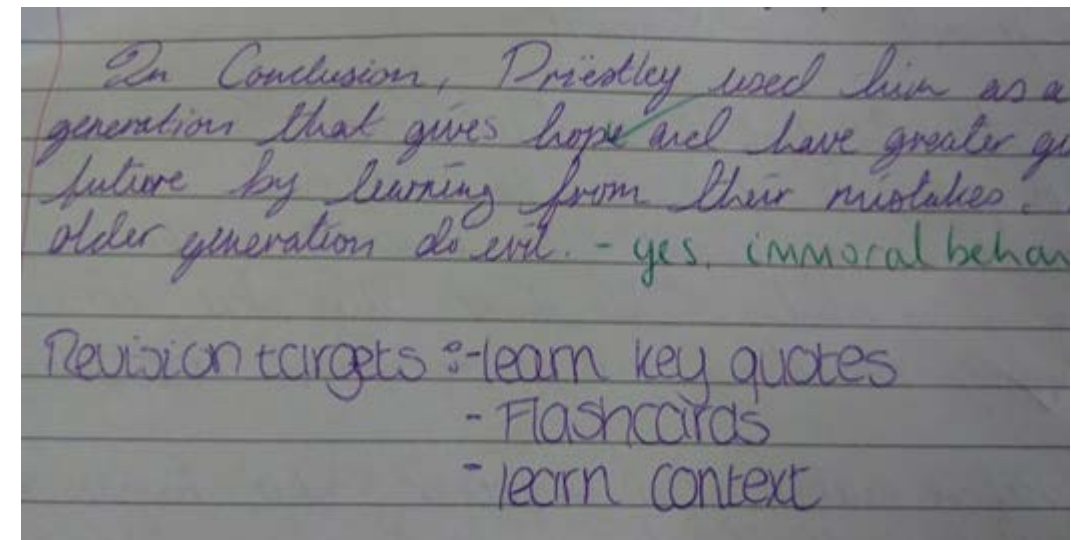 In Conclusion, Priestley used him as a
generation that gives hope and have greater
future by learning from their mistakes.
older generation do evil. - yes, immoral behav
Revision targets :- learn key quotes
- Flashcards
- learn context